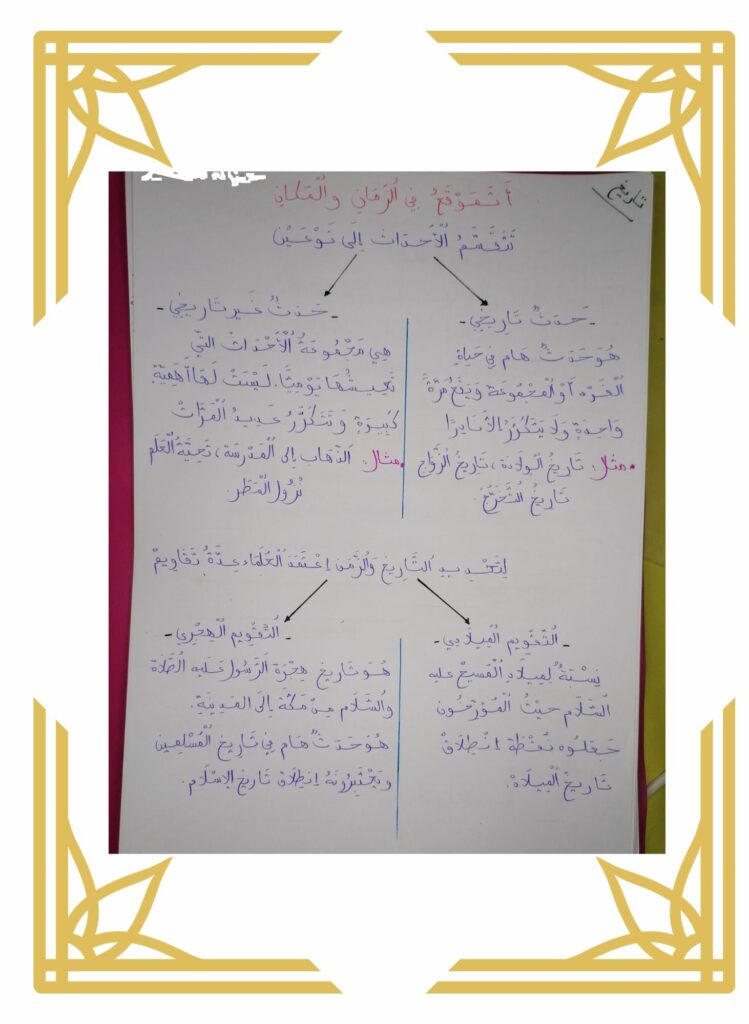 تاريخ
أَتَمَوْقَعُ فِي الزَّمَانِ وَالْمَكَانِ
تَنْقَسِمُ الْأَحْدَاثُ إِلَى نَوْعَيْنِ
- حَدَثٌ تَارِيخِيٌّ -
هُوَ حَدَثٌ هَام فِي حَيَاةِ
الْفَرْدِ أَوْ الْمَجْمُوعَة وَيَقَعُ مَرَّةً
وَاحِدَةٍ وَلَا يَتَكَرَّرُ إلَّا نَادِرًا
• مثال: تَارِيخُ الْوِلَادَة، تَارِيخُ الزَّوَاج
تَارِيخُ التَّخَرُّجْ.
- حَدَثٌ غَيْر تَارِيخِيٌّ -
هِي مَجْمُوعَةُ الْأَحْدَاثْ التِّي
نَعِيشُهَا يَوْمِيًّا. لَيْسَتْ لَهَا أَهَمِيَّةٍ
كَبِيرَةٍ وَتَتَكَرَّرُ عَدِيدُ الْمَرَّاتْ
• مثال: الذَّهَاب إِلَى الْمَدْرَسَة، تَحِيَّةُ الْعَلَم
نُزُول الْمَطَر.
لِتَحْدِيدِ التَّارِيخِ وَالزَّمَنِ اِعْتَمَدَ الْعُلَمَاء عِدَّةُ تَقَاوِيمْ
- التَّقْوِيم الْمِيلَادِي -
نِسْبَةً لِمِيلَادِ الْمَسِيحْ عليه
السَّلَام حَيْثُ الْمُؤَرِّخُون
جَعَلُوه نُقْطَة اِنْطِلَاقْ
تَارِيخْ الْمِيلَادْ.
- التَّقْوِيم الْهِجْرِي -
هُوَ تَارِيخ هِجْرَة الرَّسُول عَلَيهِ الصَّلَاة
وَالسَّلَام مِنْ مَكَّةَ إِلَى الْمَدِينَةِ.
هُوَ حَدَثٌ هَام فِي تَارِيخِ الْمُسْلِمِين
وَيَعْتَبِرُونَهُ اِنْطِلَاقْ تَارِيخ الإِسْلَام.